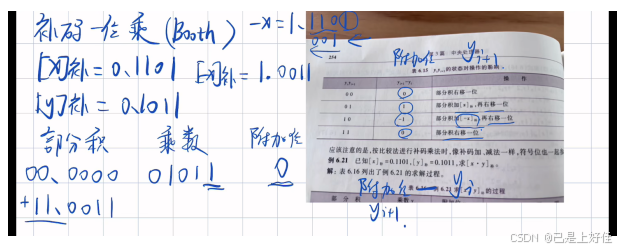 补码一位乘(Booth) -x=1.1101
001
[x]补=0.1101 [-x]补=1.0011
[y]补=0.1011
部分积 乘数 附加位
00.0000 01011 0
+11.0011
附加位 y_{i+1}
254
操作
0 0 0 部分积右移一位
0 1 1 部分积加[x]补,再右移一位
1 0 -1 部分积加[-x]补,再右移一位
1 1 0 部分积右移一位
应该注意的是,按比较法进行补码乘法时,像补码加、减法一样,符号位也一起
例 6.21 已知[x]补=0.1101,[y]补=0.1011,求[x·y]补。
解:表 6.16 列出了例 6.21 的求解过程。
附加位 - y_i
y_{i+1}
例 6.21 的过程
部分积
CSDN @已是上好佳